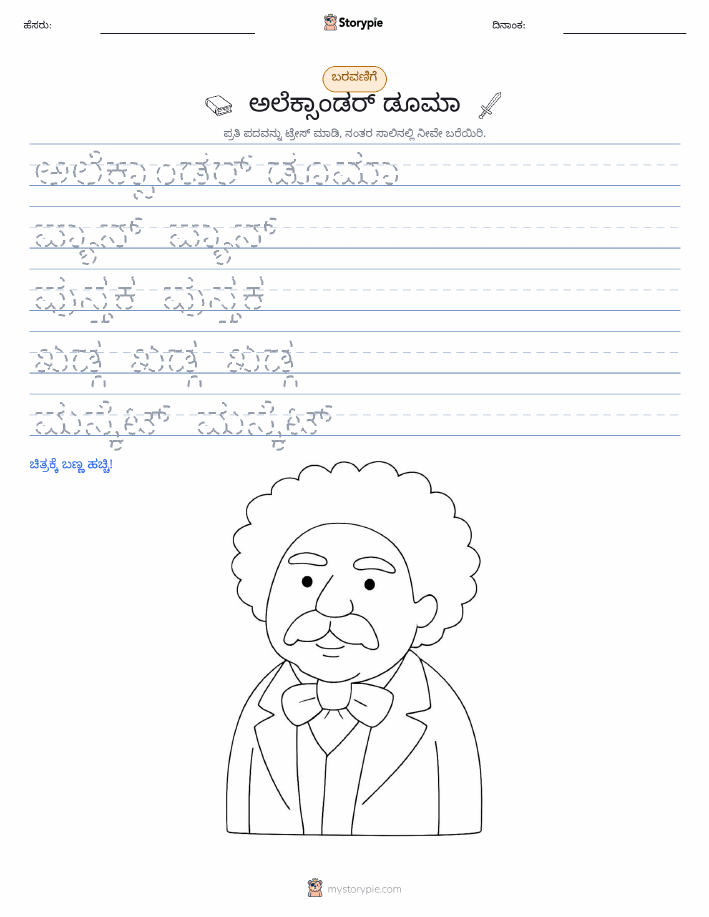 ಹೆಸರು:
Storypie
ದಿನಾಂಕ:
ಬರವಣಿಗೆ
ಅಲೆಕ್ಸಾಂಡರ್ ಡೂಮಾ
ಪ್ರತಿ ಪದವನ್ನು ಟ್ರೇಸ್ ಮಾಡಿ, ನಂತರ ಸಾಲಿನಲ್ಲಿ ನೀವೇ ಬರೆಯಿರಿ.
ಅಲೆಕ್ಸಾಂಡರ್ ಡೂಮಾ
ಪುಸ್ತಕ ಪುಸ್ತಕ
ಖಡ್ಗ ಖಡ್ಗ ಖಡ್ಗ
ಚಿತ್ರಕ್ಕೆ ಬಣ್ಣ ಹಚ್ಚಿ!
mystorypie.com